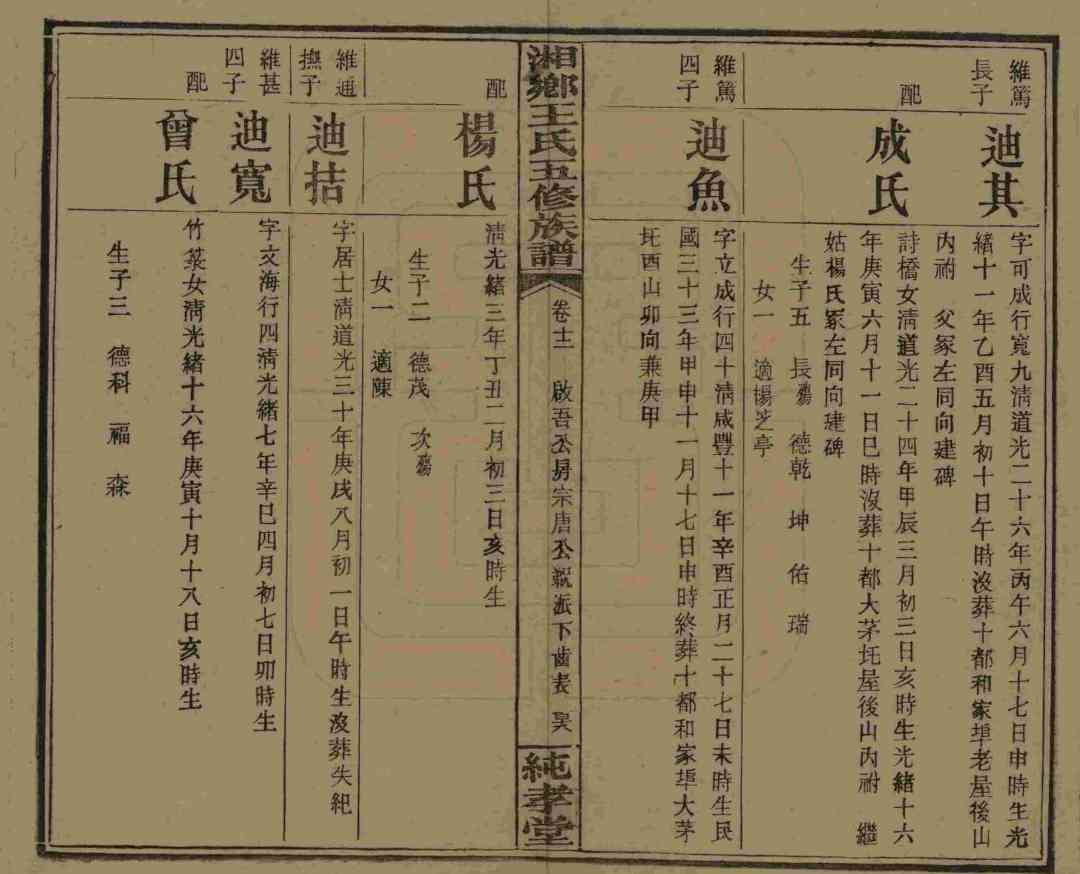 維篤
長子
迪其
字可成行寬九淸道光二十六年丙午六月十七日申時生光
緒十一年乙酉五月初十日午時沒葬十都和家埠老屋後山
內祔　父冢左同向建碑
配
成氏
詩橋女淸道光二十四年甲辰三月初三日亥時生光緒十六
年庚寅六月十一日巳時沒葬十都大茅圫屋後山內祔　繼
姑楊氏冢左同向建碑
生子五　長殤　德乾　坤　佑　瑞
女一　適楊芝亭
維篤
四子
迪魚
字立成行四十淸咸豐十一年辛酉正月二十七日未時生民
國三十三年甲申十一月十七日申時終葬十都和家埠大茅
圫酉山卯向兼庚甲
湘鄉王氏五修族譜
卷十二　啟吾公房宗唐公親派下齒表
純孝堂
配
楊氏
淸光緒三年丁丑二月初三日亥時生
生子二　德茂　次殤
女一　適陳
維通
撫子
迪拮
字居士淸道光三十年庚戌八月初一日午時生沒葬失紀
維甚
四子
迪寬
字交海行四淸光緒七年辛巳四月初七日卯時生
配
曾氏
竹蓂女淸光緒十六年庚寅十月十八日亥時生
生子三　德科　福　森